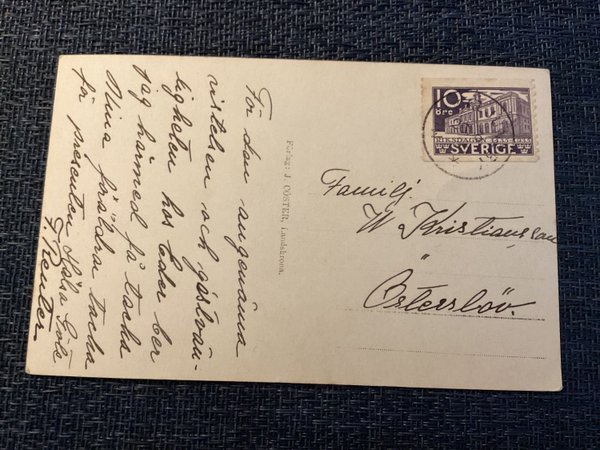 För den angenäma
vistelsen och gästvän-
ligheten hos Eder ber
jag härmed få tacka
Mina föräldrar tacka
för presenten
Reuter
Förlag: J. CÖSTER, Landskrona.
10
öre
RIKSDAGEN 1435-1935
SVERIGE
Familj.
W Kristiansson
"
Österslöv.